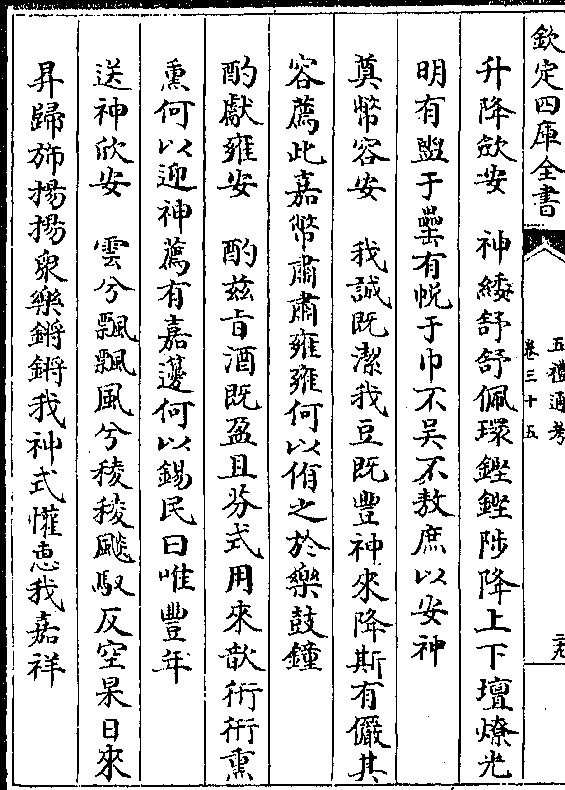 欽定四庫全書
五禮通考
卷三十五
升降欽安　神緌舒舒佩環鏗鏗陟降上下壇燎光
明有盥于罍有帨于巾不吴不敖庶以安神
奠幣容安　我誠既潔我豆既豐神來降斯有儼其
容薦此嘉幣肅肅雍雍何以侑之於樂鼓鐘
酌獻雍安　酌兹旨酒既盈且芬式用來歆衎衎熏
熏何以迎神薦有嘉籩何以錫民曰唯豐年
送神欣安　雲兮飄飄風兮稜稜飈馭反空杲日來
昇歸斾揚揚衆樂鏘鏘我神式懽惠我嘉祥